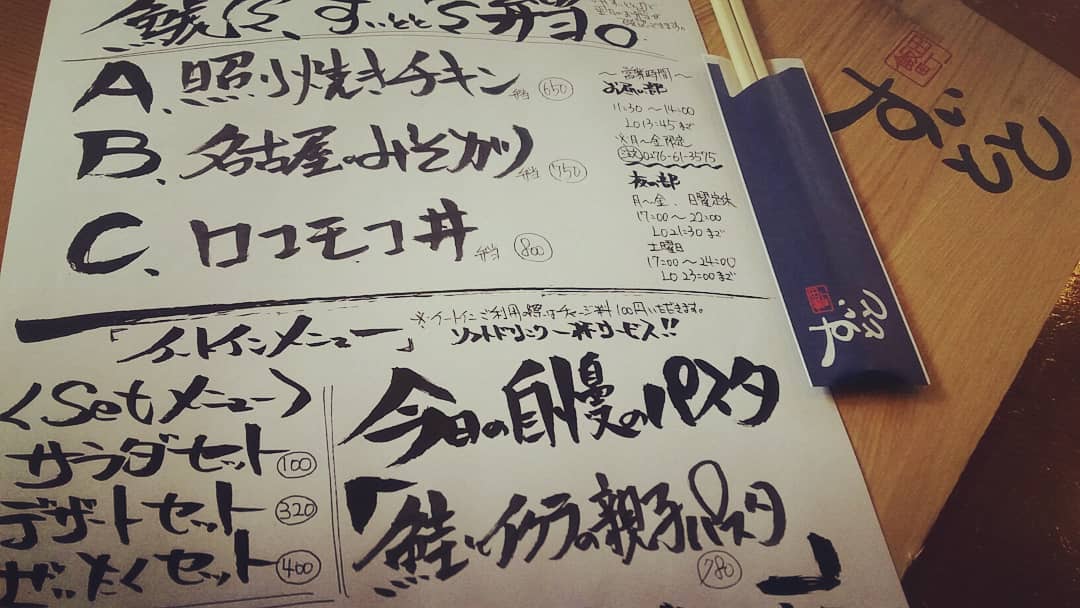 すいとと'S 弁当。
A、照り焼きチキン 弁当 650
B、名古屋のみそカツ 弁当 750
C、ロコモコ丼 弁当 800
～営業時間～
お昼の部
11:30～14:00
LO 13:45まで
※月～金限定
0176-61-3575
夜の部
月～金、日曜定休
17:00～22:00
LO 21:30まで
土曜日
17:00～24:00
LO 23:00まで
※イートインご利用の際はチャージ料100円いただきます。
「イートインメニュー」
ソフトドリンク一杯サービス!!
〈Setメニュー〉
サラダセット 100
デザートセット 320
ぜいたくセット 400
今日の自慢のパスタ
「鮭とイクラの親子パスタ」
780